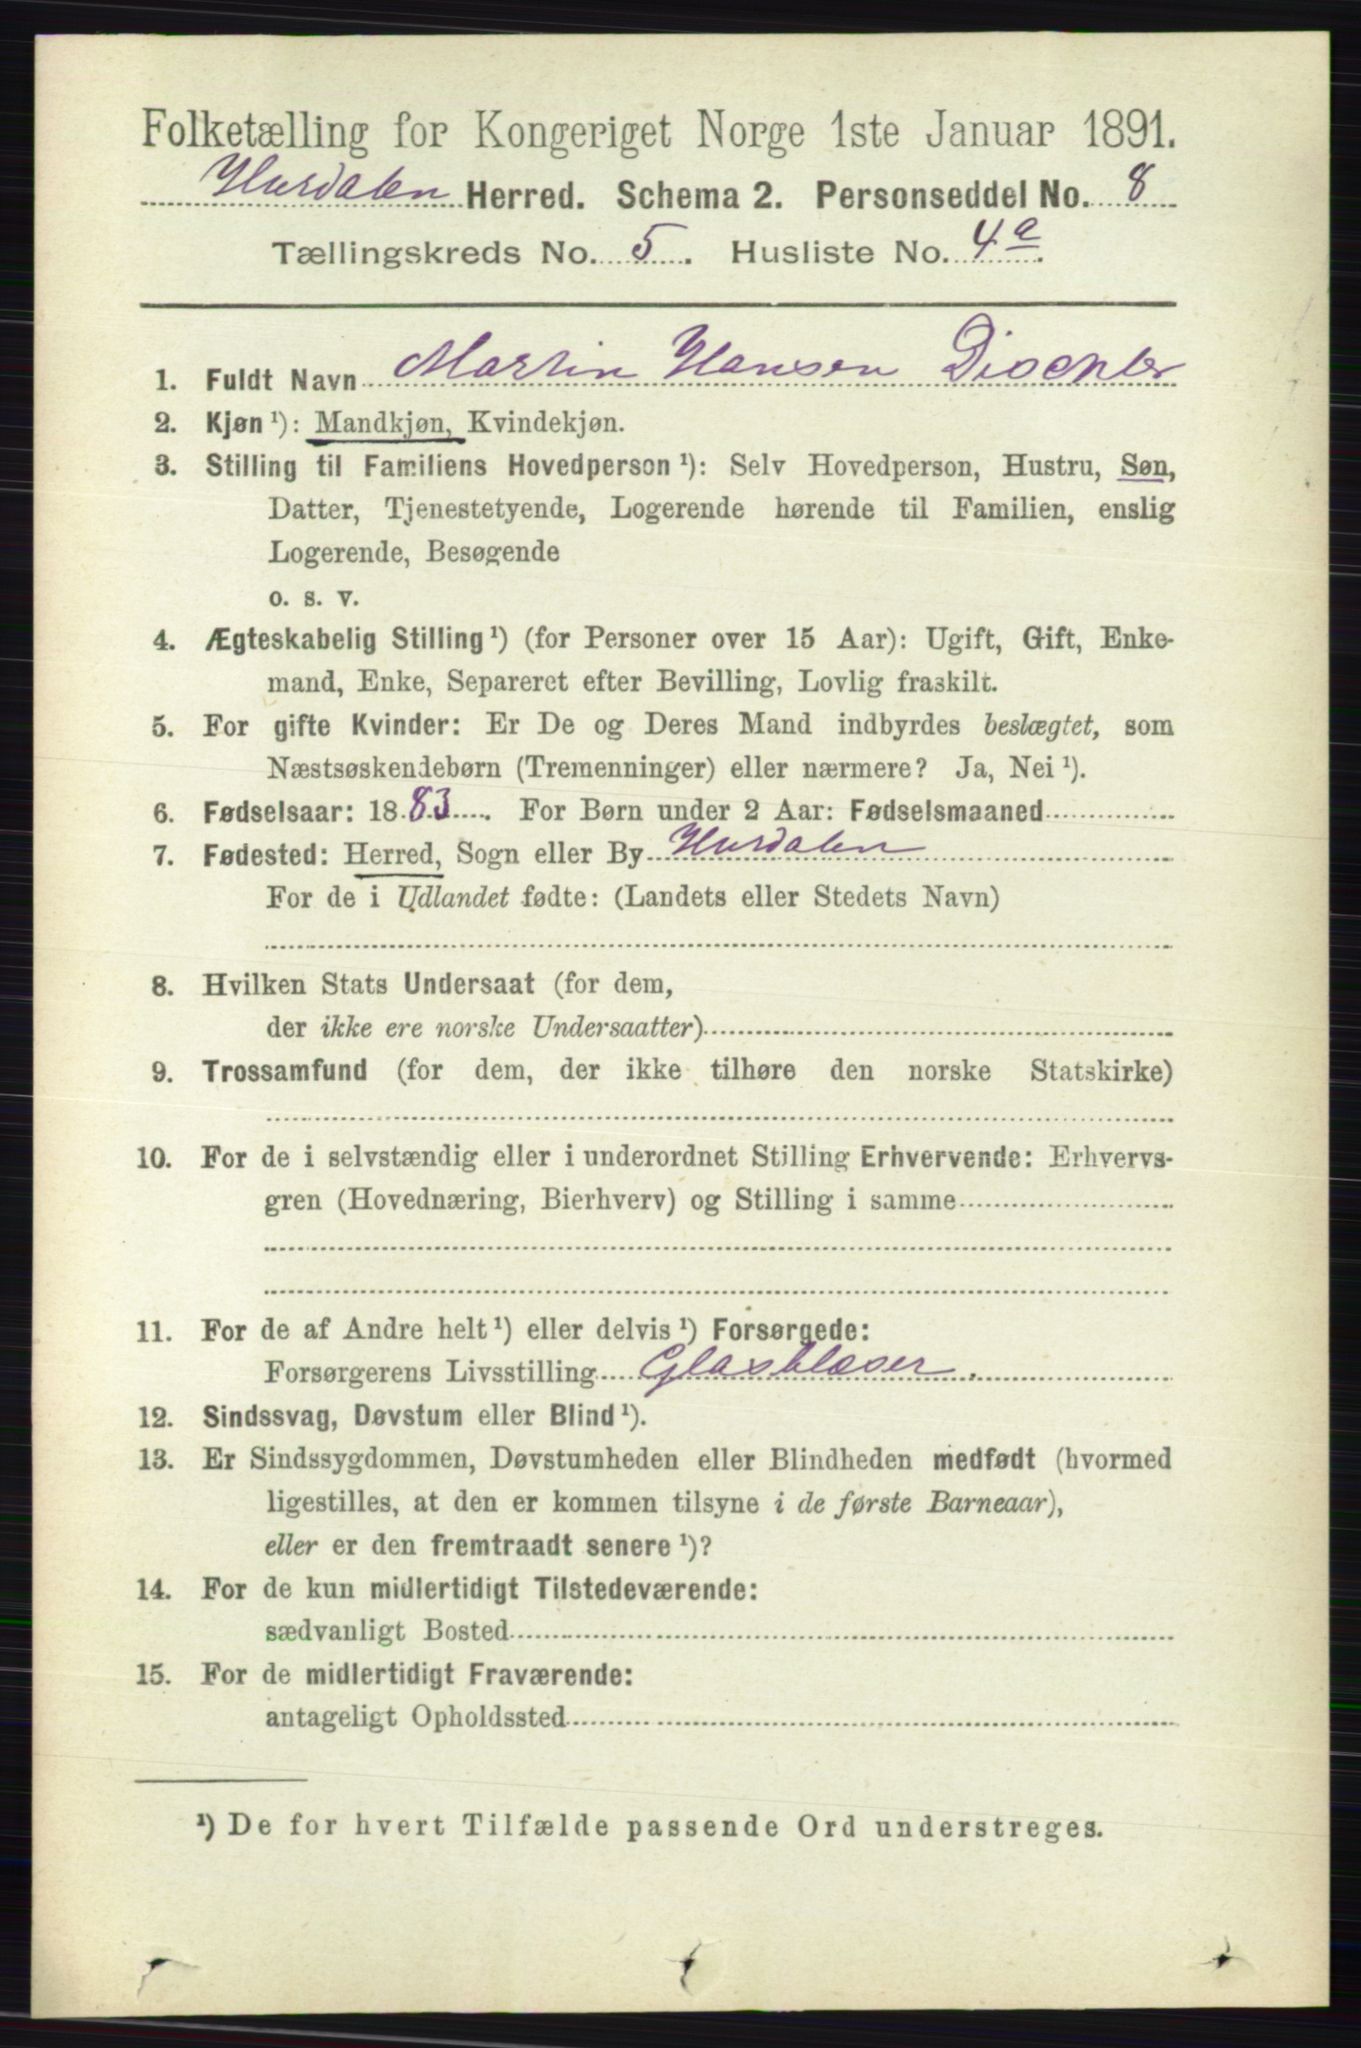 Folketælling for Kongeriget Norge 1ste Januar 1891.
Hurdalen Herred. Schema 2. Personseddel No. 8
Tællingskreds No. 5. Husliste No. 4a.
1. Fuldt Navn Martin Hansen Dischler
2. Kjøn¹): Mandkjøn, Kvindekjøn.
3. Stilling til Familiens Hovedperson¹): Selv Hovedperson, Hustru, Søn,
Datter, Tjenestetyende, Logerende hørende til Familien, enslig
Logerende, Besøgende
o. s. v.
4. Ægteskabelig Stilling¹) (for Personer over 15 Aar): Ugift, Gift, Enke-
mand, Enke, Separeret efter Bevilling, Lovlig fraskilt.
5. For gifte Kvinder: Er De og Deres Mand indbyrdes beslægtet, som
Næstsøskendebørn (Tremenninger) eller nærmere? Ja, Nei¹).
6. Fødselsaar: 1883. For Børn under 2 Aar: Fødselsmaaned
7. Fødested: Herred, Sogn eller By Hurdalen
For de i Udlandet fødte: (Landets eller Stedets Navn)
8. Hvilken Stats Undersaat (for dem,
der ikke ere norske Undersaatter)
9. Trossamfund (for dem, der ikke tilhøre den norske Statskirke)
10. For de i selvstændig eller i underordnet Stilling Erhvervende: Erhvervs-
gren (Hovednæring, Bierhverv) og Stilling i samme
11. For de af Andre helt¹) eller delvis¹) Forsørgede:
Forsørgerens Livsstilling Glasblæser.
12. Sindssvag, Døvstum eller Blind¹).
13. Er Sindssygdommen, Døvstumheden eller Blindheden medfødt (hvormed
ligestilles, at den er kommen tilsyne i de første Barneaar),
eller er den fremtraadt senere¹)?
14. For de kun midlertidigt Tilstedeværende:
sædvanligt Bosted
15. For de midlertidigt Fraværende:
antageligt Opholdssted
¹) De for hvert Tilfælde passende Ord understreges.